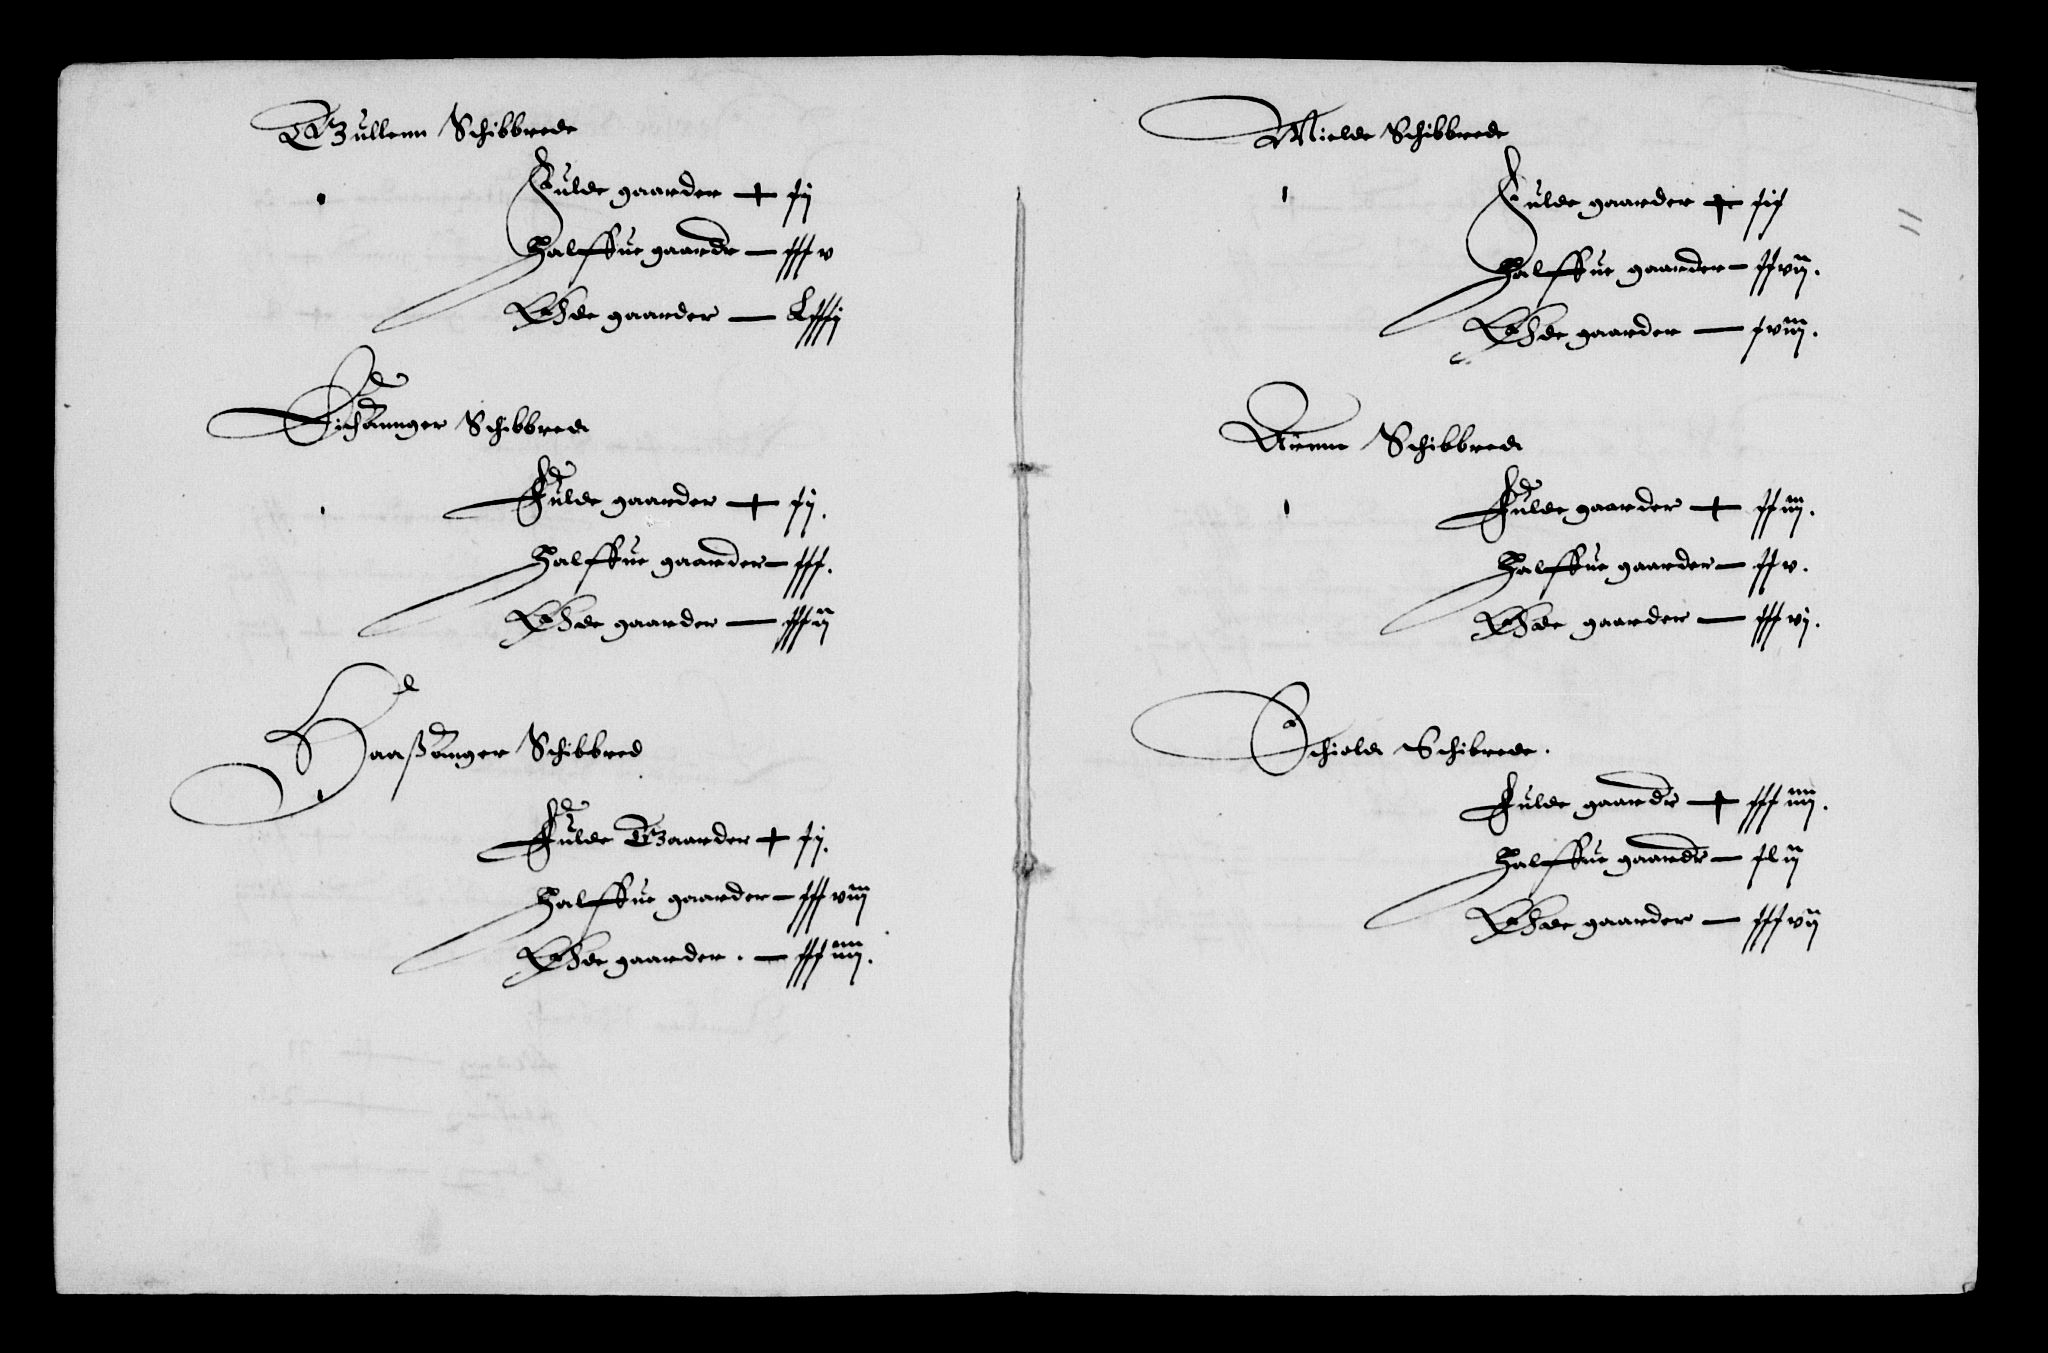 Gullenn Schibbrede
Fulde gaarder + xij
Halffue gaarde — xxxv
Øde gaarder — Lxxxij
Eichanger Schibbrede
Fulde gaarder + xij.
Halffue gaarder — xxx.
Øde gaarder — xxxij
Haaßanger Schibbred
Fulde Gaarder + xij.
Halffue gaarder — xxxviij
Øde gaarder. — xxxiiij.
Mielde Schibbrede
Fulde gaarder + xix
Halffue gaarder — xxvij.
Øde gaarder — xviij.
Arune Schibbrede
Fulde gaarder + xxiij.
Halffue gaarder — xxv.
Øde gaarder — xxxvj.
Schiold Schibrede.
Fulde gaarder + xxxiiij.
Halffue gaarder — xlij
Øde gaarder — xxxvij